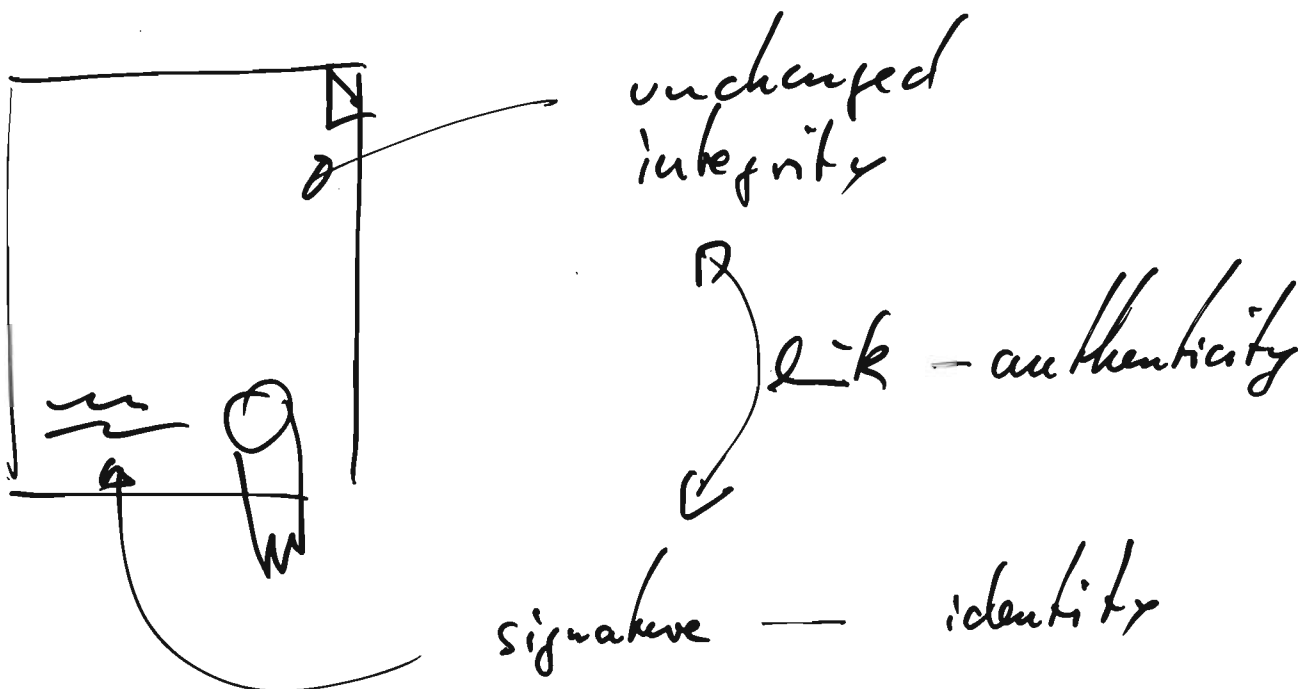 unchanged
integrity
link – authenticity
signature — identity